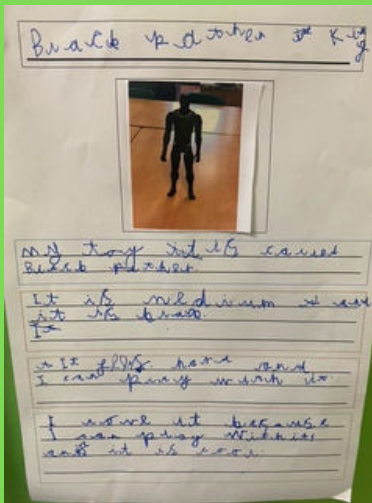 Black pather The King
my toy it is called
Black pather.
It is medium and
it is black.
It
It feels hard and
I can play with it.
I love it because
I can play with it
and it is cool.